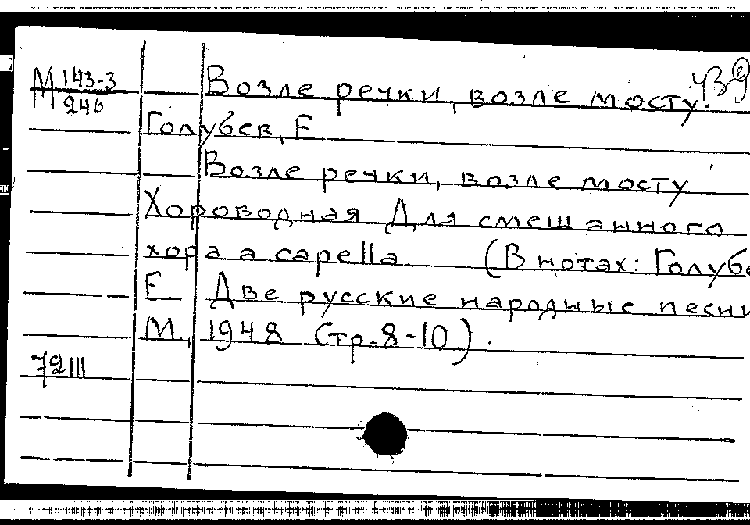 М 143-3 Возле речки, возле мосту.
240
Голубев, Е
Возле речки, возле мосту
Хороводная Для смешанного
хора a capella (В нотах: Голубе
Е Две русские народные песни
М., 1948 (стр. 8-10).
72III